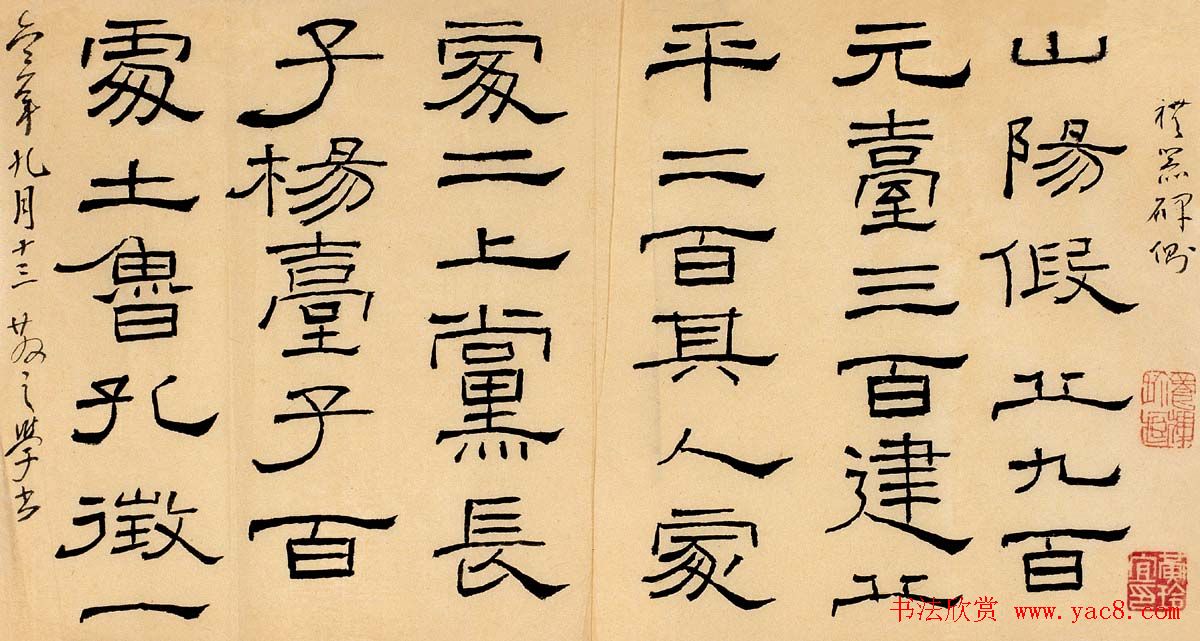 禮器碑側
山陽假丘九百
元臺三百建丘
平二百其人處
處二上黨長
子楊臺子百
處士魯孔徵一
年九月十三 之學書
书法欣赏 www.yac8.com